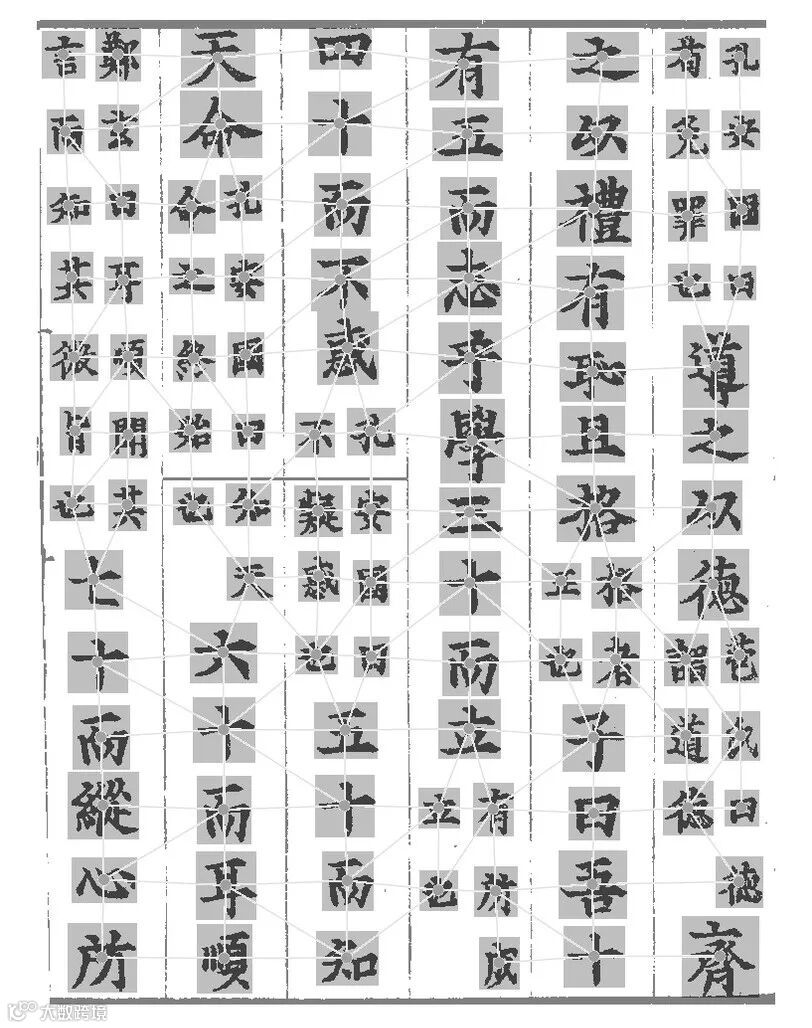 孔安國曰苟免罪也導之以德苞氏曰德謂道德齊
之以禮有恥且格格者正也子曰吾十
有五而志于學三十而立有所成立也
四十而不惑孔安國曰不疑惑也五十而知
天命孔安國曰知天命之終始也六十而耳順
鄭玄曰耳順聞其言而知其微旨也七十而縱心所
大数跨境